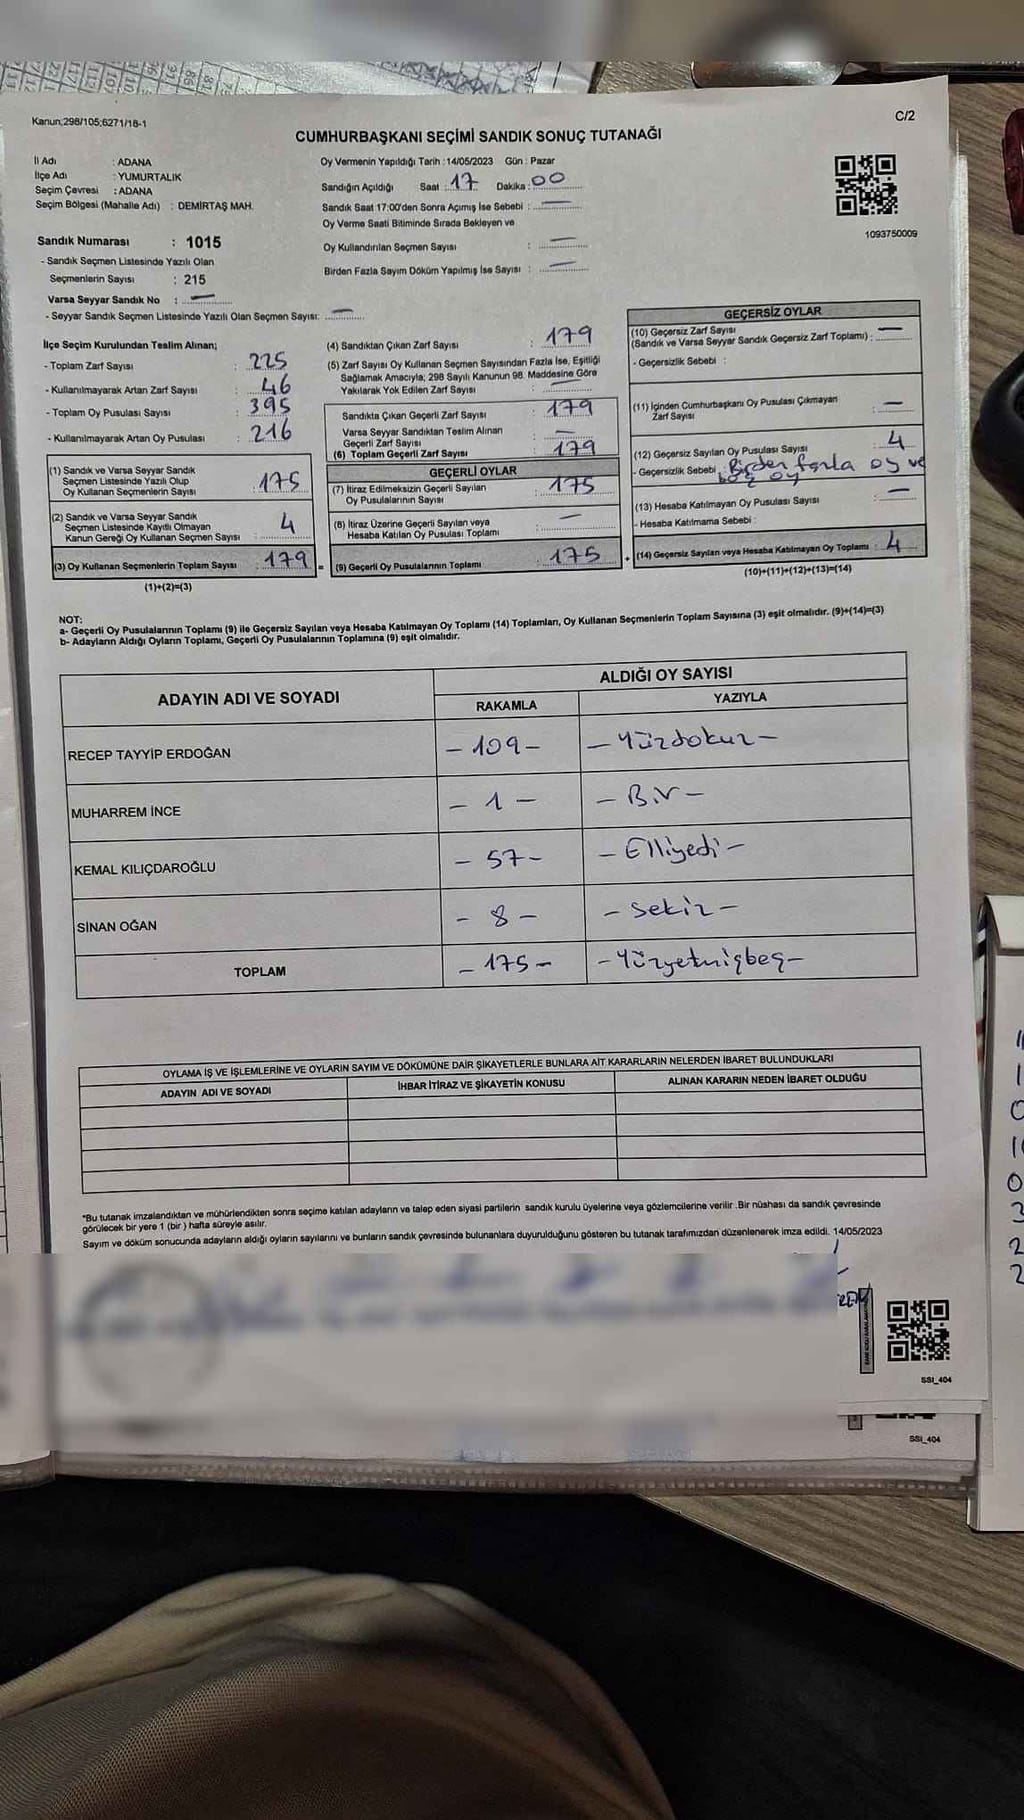 Kanun;298/105;6271/18-1
C/2
CUMHURBAŞKANI SEÇİMİ SANDIK SONUÇ TUTANAĞI
İl Adı : ADANA
İlçe Adı : YUMURTALIK
Seçim Çevresi : ADANA
Seçim Bölgesi (Mahalle Adı) : DEMİRTAŞ MAH.
Oy Vermenin Yapıldığı Tarih : 14/05/2023 Gün : Pazar
Sandığın Açıldığı Saat : 17 Dakika : 00
Sandık Saat 17:00'den Sonra Açımış İse Sebebi : —
Oy Verme Saati Bitiminde Sırada Bekleyen ve
Oy Kullandırılan Seçmen Sayısı : —
Birden Fazla Sayım Döküm Yapılmış İse Sayısı : —
1093750009
Sandık Numarası : 1015
- Sandık Seçmen Listesinde Yazılı Olan
Seçmenlerin Sayısı : 215
Varsa Seyyar Sandık No : —
- Seyyar Sandık Seçmen Listesinde Yazılı Olan Seçmen Sayısı: —
İlçe Seçim Kurulundan Teslim Alınan;
- Toplam Zarf Sayısı : 225
- Kullanılmayarak Artan Zarf Sayısı : 46
- Toplam Oy Pusulası Sayısı : 395
- Kullanılmayarak Artan Oy Pusulası : 216
(1) Sandık ve Varsa Seyyar Sandık
Seçmen Listesinde Yazılı Olup
Oy Kullanan Seçmenlerin Sayısı : 175
(2) Sandık ve Varsa Seyyar Sandık
Seçmen Listesinde Kayıtlı Olmayan
Kanun Gereği Oy Kullanan Seçmen Sayısı : 4
(3) Oy Kullanan Seçmenlerin Toplam Sayısı : 179
(1)+(2)=(3)
(4) Sandıktan Çıkan Zarf Sayısı : 179
(5) Zarf Sayısı Oy Kullanan Seçmen Sayısından Fazla İse, Eşitliği
Sağlamak Amacıyla; 298 Sayılı Kanunun 98. Maddesine Göre
Yakılarak Yok Edilen Zarf Sayısı : —
Sandıkta Çıkan Geçerli Zarf Sayısı : 179
Varsa Seyyar Sandıktan Teslim Alınan
Geçerli Zarf Sayısı : —
(6) Toplam Geçerli Zarf Sayısı : 179
GEÇERLİ OYLAR
(7) İtiraz Edilmeksizin Geçerli Sayılan
Oy Pusulalarının Sayısı : 175
(8) İtiraz Üzerine Geçerli Sayılan veya
Hesaba Katılan Oy Pusulası Toplamı : —
= (9) Geçerli Oy Pusulalarının Toplamı : 175 +
GEÇERSİZ OYLAR
(10) Geçersiz Zarf Sayısı
(Sandık ve Varsa Seyyar Sandık Geçersiz Zarf Toplamı) : —
- Geçersizlik Sebebi :
(11) İçinden Cumhurbaşkanı Oy Pusulası Çıkmayan
Zarf Sayısı : —
(12) Geçersiz Sayılan Oy Pusulası Sayısı : 4
- Geçersizlik Sebebi : Birden fazla oy ve
boş oy
(13) Hesaba Katılmayan Oy Pusulası Sayısı : —
- Hesaba Katılmama Sebebi :
(14) Geçersiz Sayılan veya Hesaba Katılmayan Oy Toplamı : 4
(10)+(11)+(12)+(13)=(14)
NOT:
a- Geçerli Oy Pusulalarının Toplamı (9) ile Geçersiz Sayılan veya Hesaba Katılmayan Oy Toplamı (14) Toplamları, Oy Kullanan Seçmenlerin Toplam Sayısına (3) eşit olmalıdır. (9)+(14)=(3)
b- Adayların Aldığı Oyların Toplamı, Geçerli Oy Pusulalarının Toplamına (9) eşit olmalıdır.
ADAYIN ADI VE SOYADI ALDIĞI OY SAYISI
RAKAMLA YAZIYLA
RECEP TAYYİP ERDOĞAN – 109 – – Yüzdokuz –
MUHARREM İNCE – 1 – – Bir –
KEMAL KILIÇDAROĞLU – 57 – – Elliyedi –
SİNAN OĞAN – 8 – – Sekiz –
TOPLAM – 175 – – Yüzyetmişbeş –
OYLAMA İŞ VE İŞLEMLERİNE VE OYLARIN SAYIM VE DÖKÜMÜNE DAİR ŞİKAYETLERLE BUNLARA AİT KARARLARIN NELERDEN İBARET BULUNDUKLARI
ADAYIN ADI VE SOYADI İHBAR İTİRAZ VE ŞİKAYETİN KONUSU ALINAN KARARIN NEDEN İBARET OLDUĞU
*Bu tutanak imzalandıktan ve mühürlendikten sonra seçime katılan adayların ve talep eden siyasi partilerin sandık kurulu üyelerine veya gözlemcilerine verilir .Bir nüshası da sandık çevresinde
görülecek bir yere 1 (bir ) hafta süreyle asılır.
Sayım ve döküm sonucunda adayların aldığı oyların sayılarını ve bunların sandık çevresinde bulunanlara duyurulduğunu gösteren bu tutanak tarafımızdan düzenlenerek imza edildi. 14/05/2023
SSI_404
SSI_404